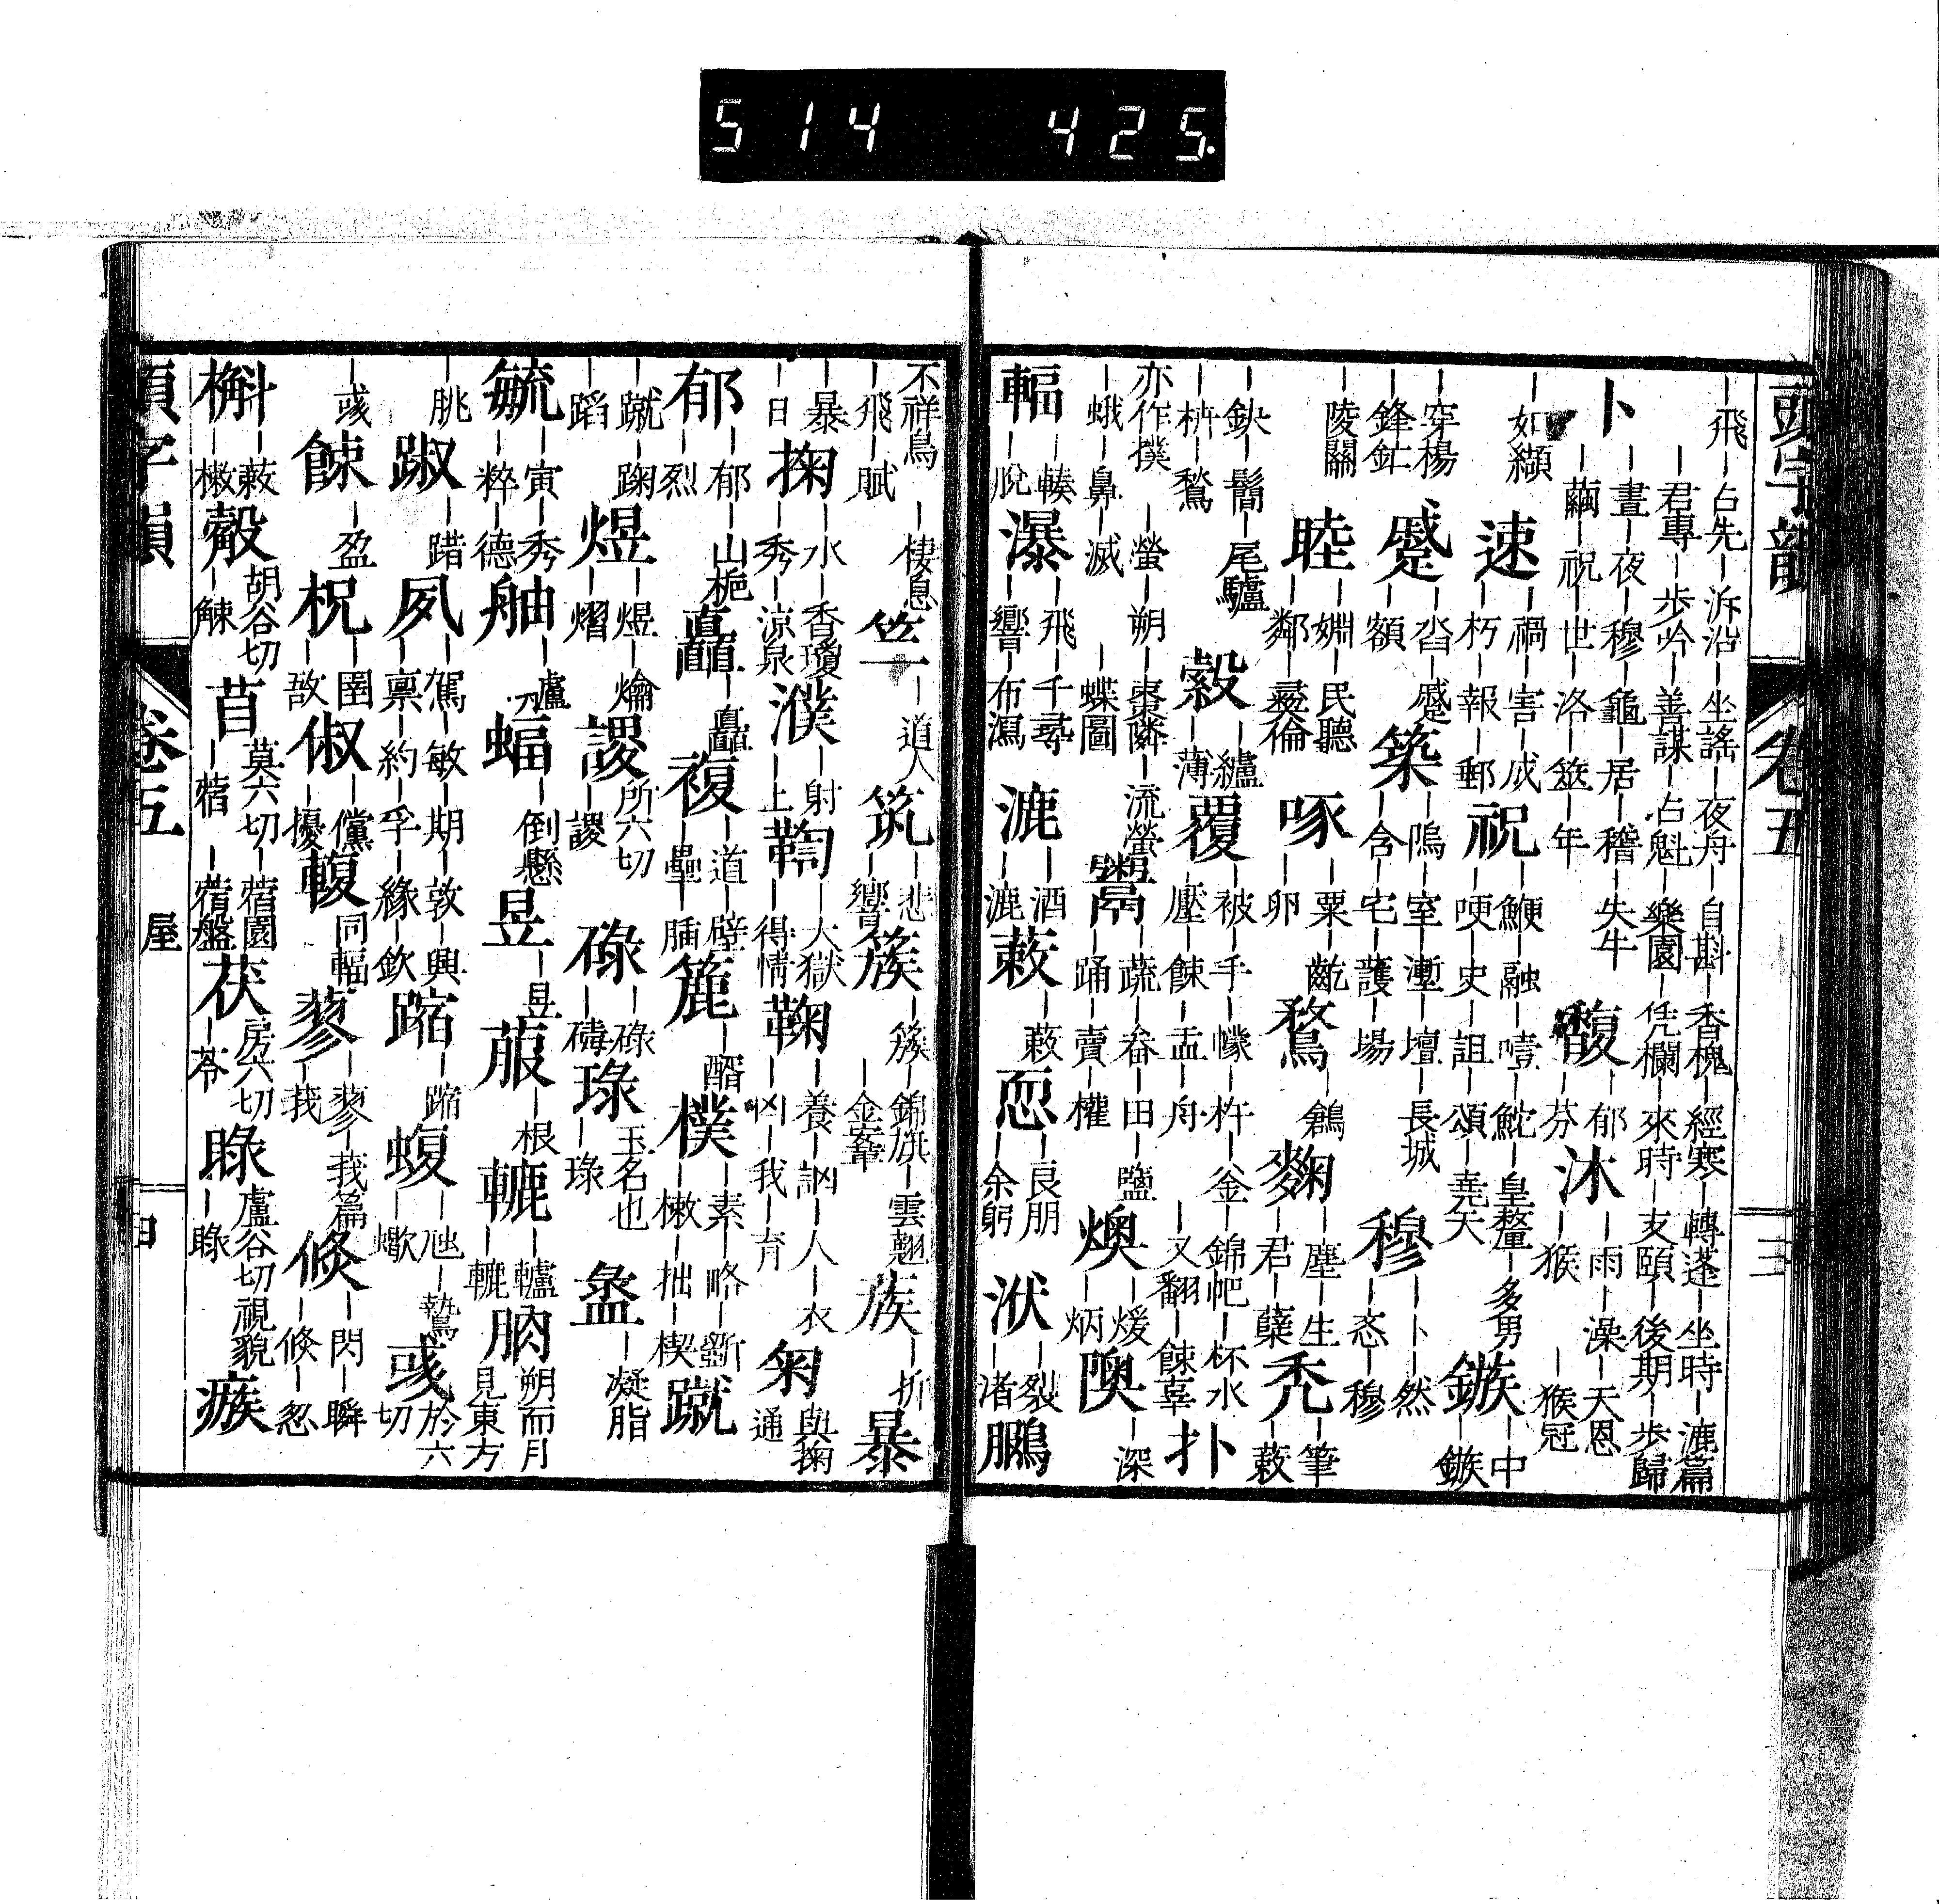 514 425
頭字韻 卷五 三
｜飛｜占先｜泝沿｜坐謠｜夜舟｜自斟｜香槐｜經寒｜轉蓬｜坐時｜漉篇
｜君專｜步吟｜善謀｜占魁｜樂園｜凭欄｜來時｜支頤｜後期｜步歸
卜｜晝｜夜｜穆｜龜｜居｜稽｜失牛
｜繭｜祝｜世｜洛｜筮｜年
馥｜郁｜芬
沐｜雨｜澡｜天恩｜猴｜猴冠
｜如纈
速｜禍｜害｜成｜朽｜報｜郵
祝｜鯁｜融｜噎｜鮀｜皇釐｜多男｜哽｜史｜詛｜頌｜堯天
鏃｜中｜鏃
｜穿楊｜鋒鋩
蹙｜沓｜蹙｜額
築｜隖｜室｜壍｜壇｜長城｜含｜宅｜䕶｜場
穆｜卜｜然｜忞｜穆
｜陵關
睦｜婣｜民聽｜鄰｜彛倫
啄｜粟｜齕｜卵
鶩｜鶬
麴｜塵｜生｜君｜糵
禿｜筆｜蔌
｜鈌｜髾｜尾驢｜枿｜鶖
縠｜纑｜薄
覆｜被｜手｜幪｜杵｜金｜錦帊｜杯水｜壓｜餗｜盂｜舟｜又翻｜餗辜
扑
亦作撲｜螢｜朔｜棗隣｜流螢｜蛾｜鼻｜滅｜蝶圖
鬻｜蔬｜畚｜田｜鹽｜踊｜賣｜權
燠｜煖｜炳
隩｜深
輻｜輳｜脫
瀑｜飛｜千尋｜響｜布瀉
漉｜酒｜漉
蔌｜蔌
恧｜良朋｜余躬
洑｜裂｜渚
鵩
不祥鳥｜棲息｜飛｜賦
竺｜道人
筑｜悲｜響
簇｜簇｜錦旂｜雲翹｜金鞌
蔟｜折
暴
｜暴｜日
掬｜水｜香瓊｜秀｜涼泉
濮｜射｜上
鞫｜大獄｜得情
鞠｜養｜訩｜人｜衣｜凶｜我｜育
匊與掬通
郁｜郁｜山梔｜烈
矗｜矗
複｜道｜壁｜壘｜腼
簏｜醑
樸｜素｜略｜斵｜樕｜拙｜楔
蹴
｜蹴｜踘｜蹈
煜｜煜｜爚｜熠
謖所六切｜謖
碌｜碌｜磚
琭玉名也｜琭
盝｜凝脂
毓｜寅｜秀｜粹｜德
舳｜艫
蝠｜倒懸
昱｜昱
菔｜根
轆｜轤｜轆
朒朔而月見東方
｜朓
踧｜踖
夙｜駕｜敏｜期｜敦｜興｜稟｜約｜孚｜緣｜欽
蹜｜蹜
蝮｜虺｜鷙｜蠍
彧於六切
｜彧
餗｜盈
柷｜圉｜敔
俶｜儻｜擾
輹同輻
蓼｜蓼｜莪篇｜莪
倏｜閃｜瞬｜倏｜忽
槲｜蔌｜樕
觳胡谷切｜觫
苜莫六切｜蓿園｜蓿｜蓿盤
茯房六切｜苓
睩盧谷切視貌｜睩
瘯
頭字韻 卷五 屋 四